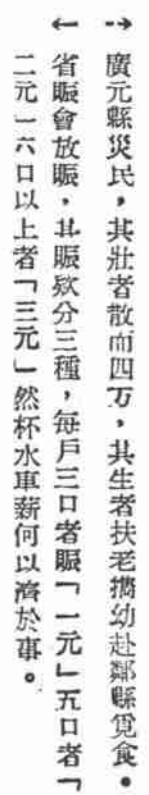 →廣元縣災民，其壯者散而四万，其生者扶老攜幼赴鄰縣覓食。
←省賑會放賑，其賑欵分三種，每戶三口者賑「一元」五口者「
二元」六口以上者「三元」然杯水車薪何以濟於事。